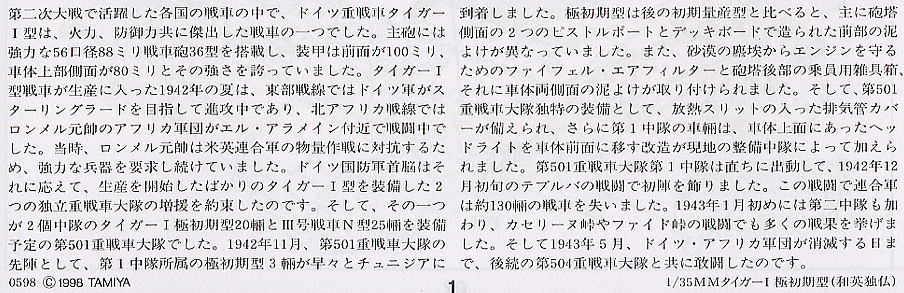 第二次大戦で活躍した各国の戦車の中で、ドイツ重戦車タイガー
I型は、火力、防御力共に傑出した戦車の一つでした。主砲には
強力な56口径88ミリ戦車砲36型を搭載し、装甲は前面が100ミリ、
車体上部側面が80ミリとその強さを誇っていました。タイガーI
型戦車が生産に入った1942年の夏は、東部戦線ではドイツ軍がス
ターリングラードを目指して進攻中であり、北アフリカ戦線では
ロンメル元帥のアフリカ軍団がエル・アラメイン付近で戦闘中で
した。当時、ロンメル元帥は米英連合軍の物量作戦に対抗するた
め、強力な兵器を要求し続けていました。ドイツ国防軍首脳はそ
れに応えて、生産を開始したばかりのタイガーI型を装備した2
つの独立重戦車大隊の増援を約束したのです。そして、その一つ
が2個中隊のタイガーI極初期型20輛とIII号戦車N型25輛を装備
予定の第501重戦車大隊でした。1942年11月、第501重戦車大隊の
先陣として、第1中隊所属の極初期型3輛が早々とチュニジアに
到着しました。極初期型は後の初期量産型と比べると、主に砲塔
側面の2つのピストルポートとデッキボードで造られた前部の泥
よけが異なっていました。また、砂漠の塵埃からエンジンを守る
ためのファイフェル・エアフィルターと砲塔後部の乗員用雑具箱、
それに車体両側面の泥よけが取り付けられました。そして、第501
重戦車大隊独特の装備として、放熱スリットの入った排気管カバ
ーが備えられ、さらに第1中隊の車輛は、車体上面にあったヘッ
ドライトを車体前面に移す改造が現地の整備中隊によって加えら
れました。第501重戦車大隊第1中隊は直ちに出動して、1942年12
月初旬のテブルバの戦闘で初陣を飾りました。この戦闘で連合軍
は約130輛の戦車を失いました。1943年1月初めには第二中隊も加
わり、カセリーヌ峠やファイド峠の戦闘でも多くの戦果を挙げま
した。そして1943年5月、ドイツ・アフリカ軍団が消滅する日ま
で、後続の第504重戦車大隊と共に敢闘したのです。
0598 ©1998 TAMIYA
1
1/35MMタイガーI極初期型(和英独仏)